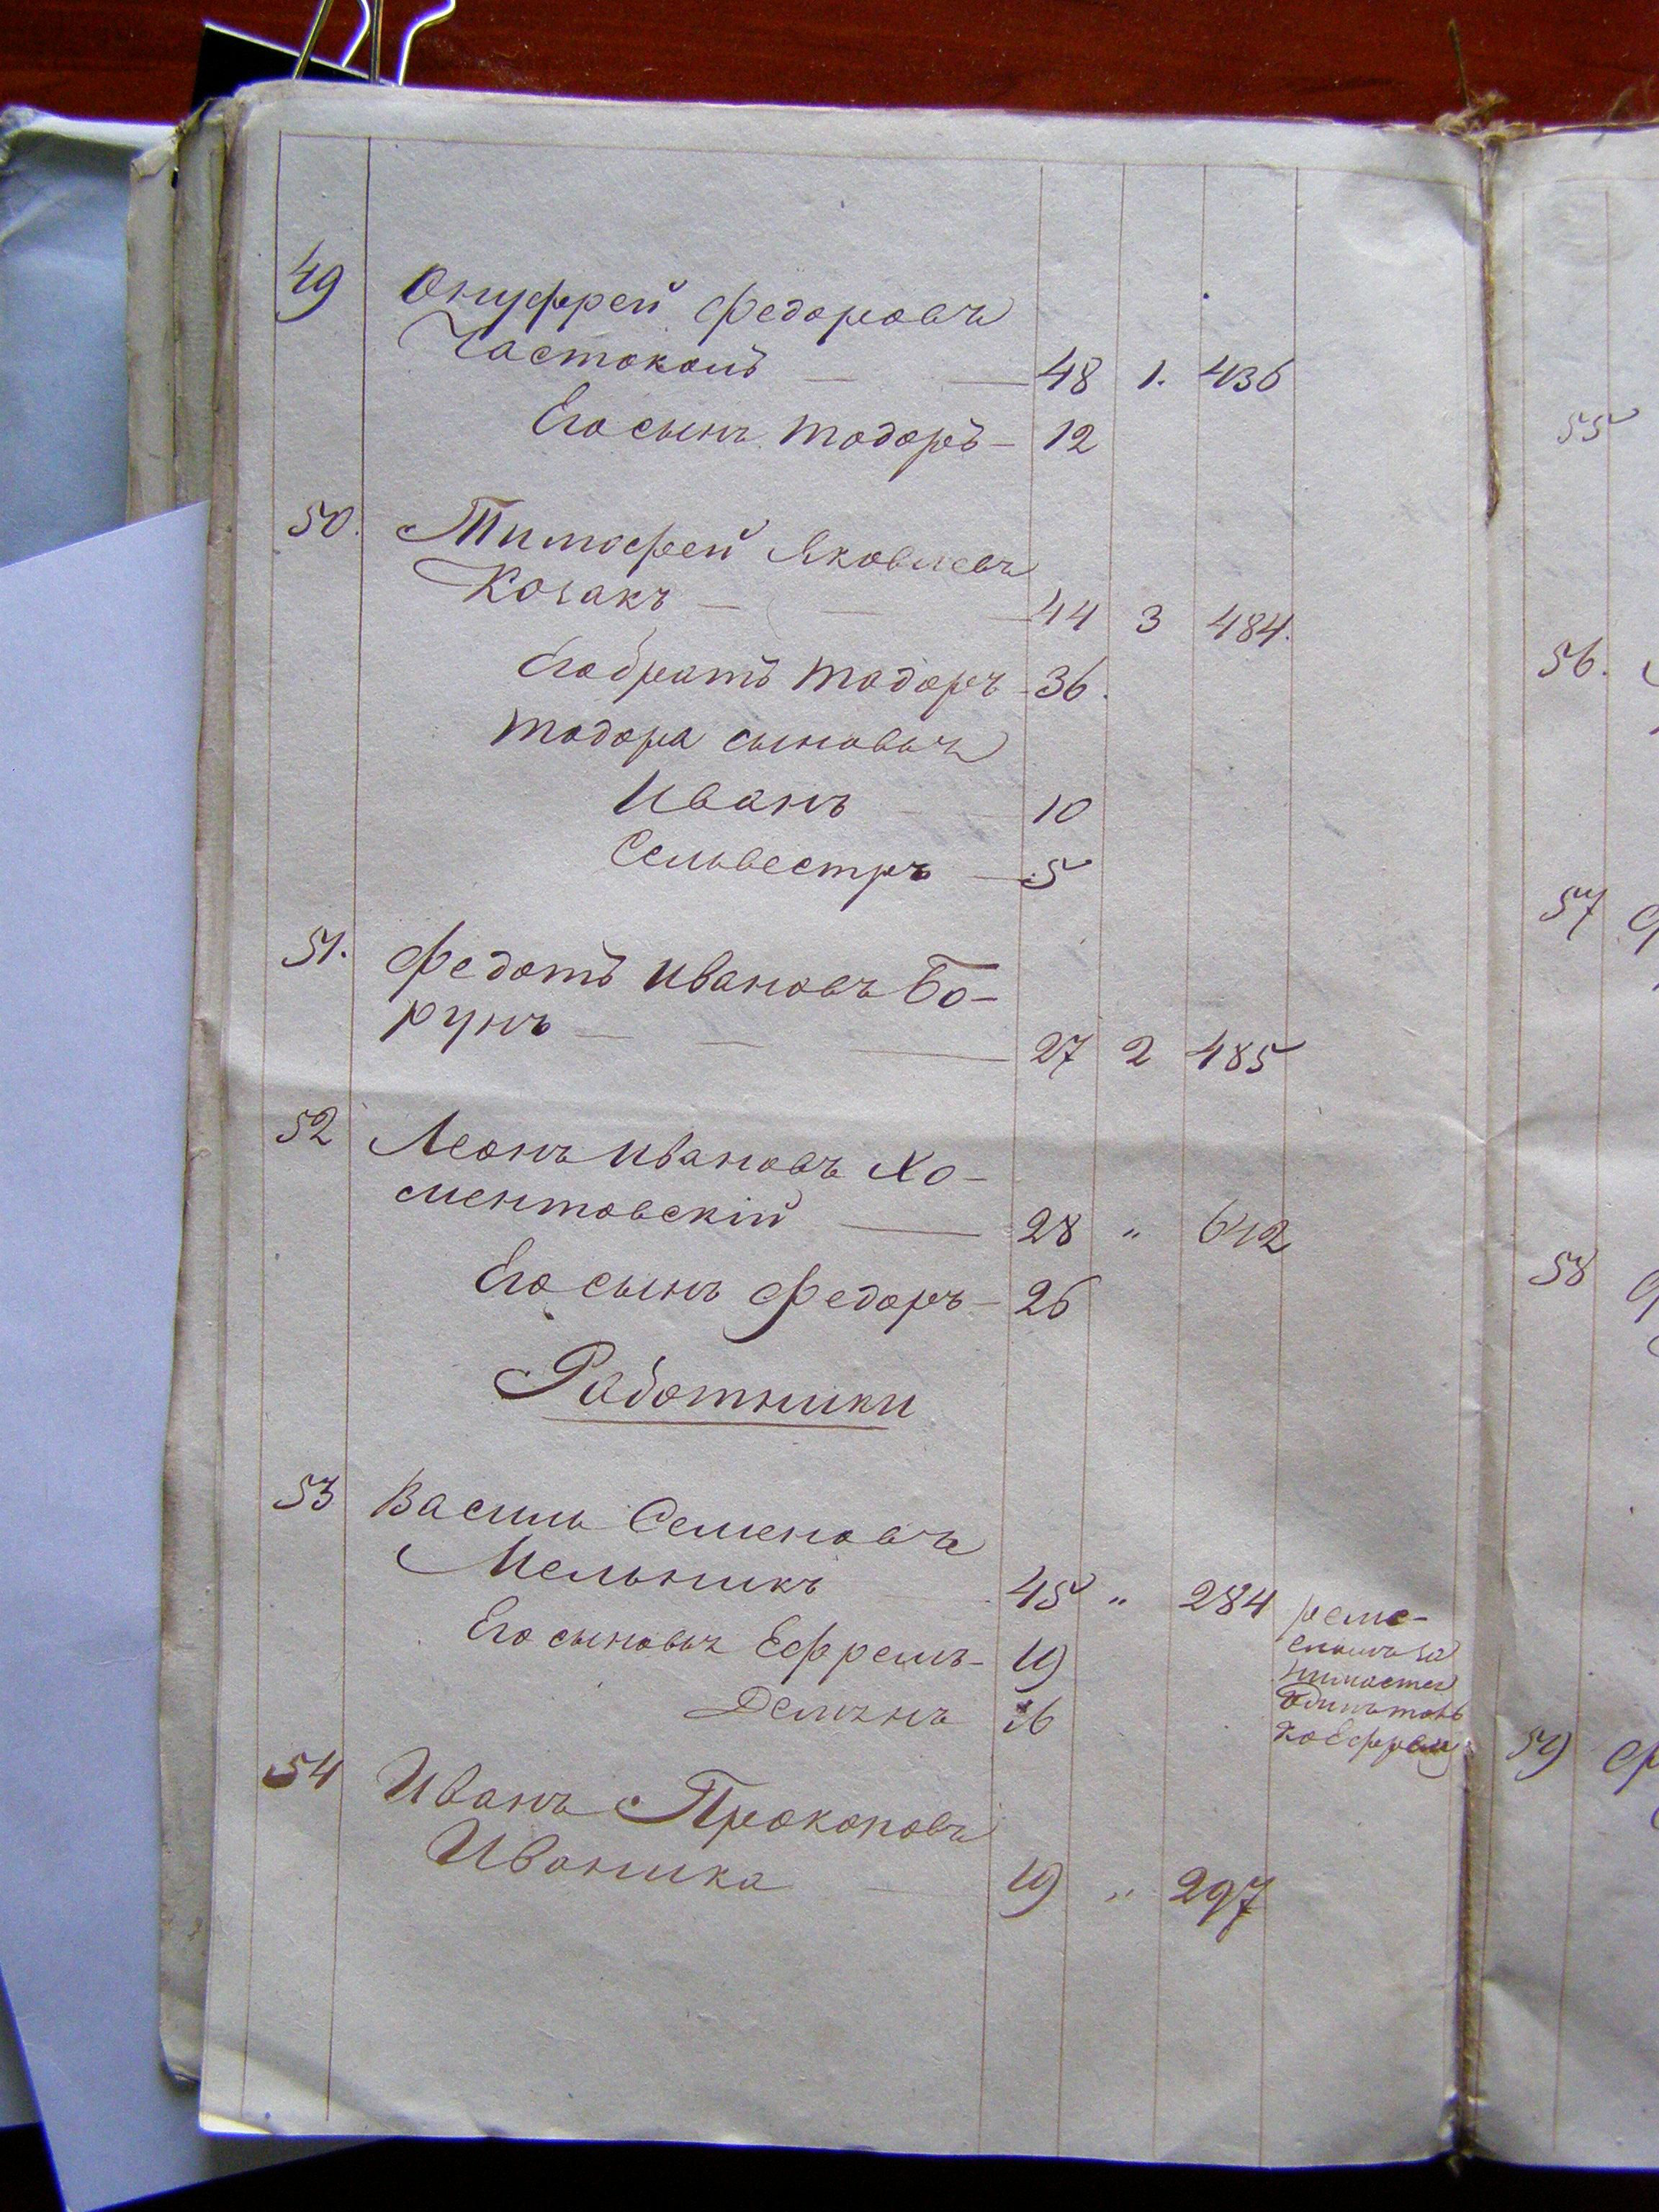 49 Онуфрей Федоровъ
Частоколъ — — 48 1. 436
Его сынъ Тодоръ — 12
50. Тимофей Яковлевъ
Козакъ — — 44 3 484.
Его братъ Тодоръ 36.
Тодора сыновья
Иванъ — 10
Сельвестръ — 5
51. Федотъ Ивановъ Бо-
рунъ — — — 27 2 485
52 Леонъ Ивановъ Хо-
ментовскій — 28 " 642
Его сынъ Федоръ — 26
Работники
53 Василь Семеновъ
Мельникъ 45 " 284 реме-
сломъ за
нимается
одинъ толь
ко Ефрем
Его сыновья Ефремъ — 19
Демянъ 16
54 Иванъ Прокоповъ
Иваника — 19 " 297
55
56.
57
58
59